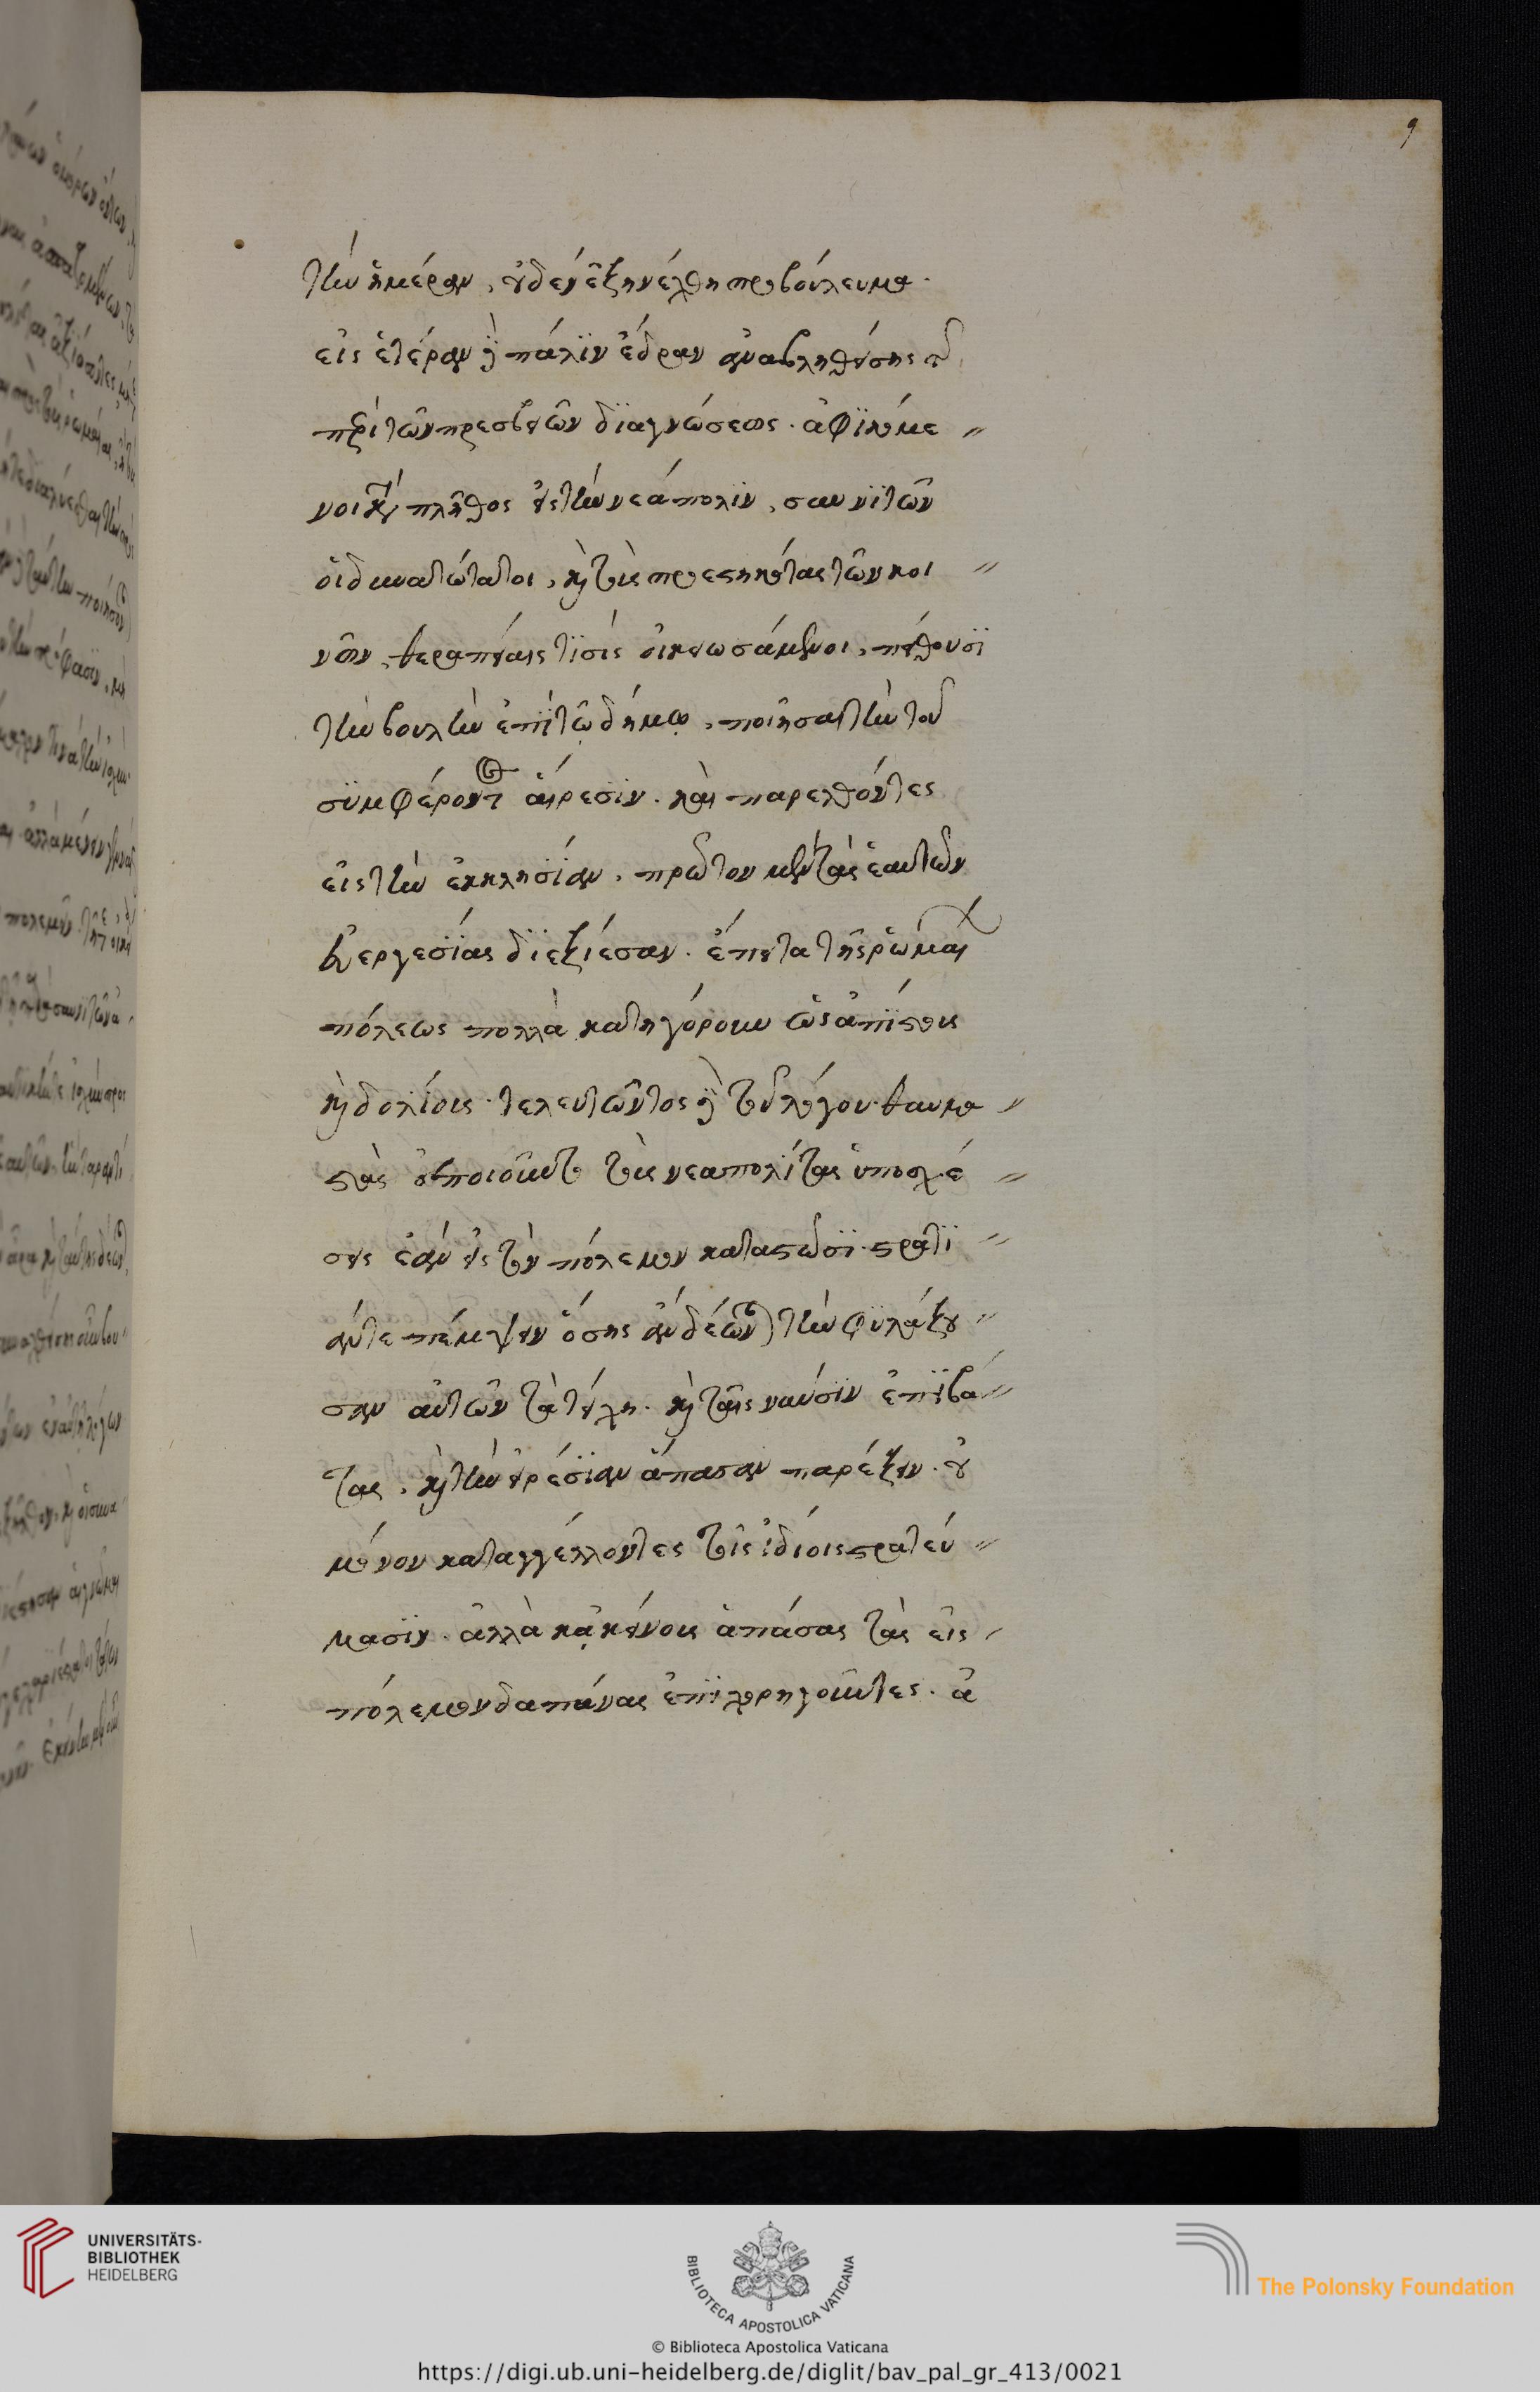 9
τὴν ἡμέραν, οὐδὲν ἐξηνέχθη προβούλευμα.
εἰς ἑτέραν δὲ πάλϊν ἕδραν ἀναβληθείσης τῆς
περὶ τῶν πρεσβειῶν δϊαγνώσεως. ἀφϊκόμε
νοι κατὰ πλῆθος εἰς τὴν νεάπολϊν, σαυνϊτῶν
οἱ δυνατώτατοι, καὶ τοὺς προεστηκότας τῶν κοι
νῶν, θεραπείαις τϊσὶς οἰκειωσάμενοι, πείθουσϊ
τὴν βουλὴν ἐπὶ τῷ δήμῳ, ποιῆσαι τὴν τοῦ
σϋμφέροντος αἵρεσϊν. καὶ παρελθόντες
εἰς τὴν ἐκκλησΐαν, πρῶτον μὲν τὰς ἑαυτῶν
εὐεργεσΐας δϊεξίεσαν. ἔπειτα τῆς ῥωμαίων
πόλεως πολλὰ κατηγόρουν ὡς ἀπΐστου
καὶ δολίου. τελευτῶντος δὲ τοῦ λόγου. θαυμα
στὰς ἐποιοῦντο τοῖς νεαπολίταις ὑποσχέ
σεις ἐὰν εἰς τὸν πόλεμον καταστῶσϊ. στρατϊ
άν τε πέμψειν ὅσης ἂν δέωνται τὴν φϋλάξου
σαν αὐτῶν τὰ τείχη. καὶ ταῖς ναυσϊν ἐπϊβά
τας. καὶ τὴν εἰρεσΐαν ἅπασαν παρέξειν. οὐ
μόνον καταγγέλλοντες τοῖς ἰδίοις στρατεύ
μασϊν. ἀλλὰ κἀκείνοις ἁπάσας τὰς εἰς
πόλεμον δαπάνας ἐπϊχορηγοῦντες. ἀ
UNIVERSITÄTS-
BIBLIOTHEK
HEIDELBERG
BIBLIOTECA APOSTOLICA VATICANA
The Polonsky Foundation
© Biblioteca Apostolica Vaticana
https://digi.ub.uni-heidelberg.de/diglit/bav_pal_gr_413/0021